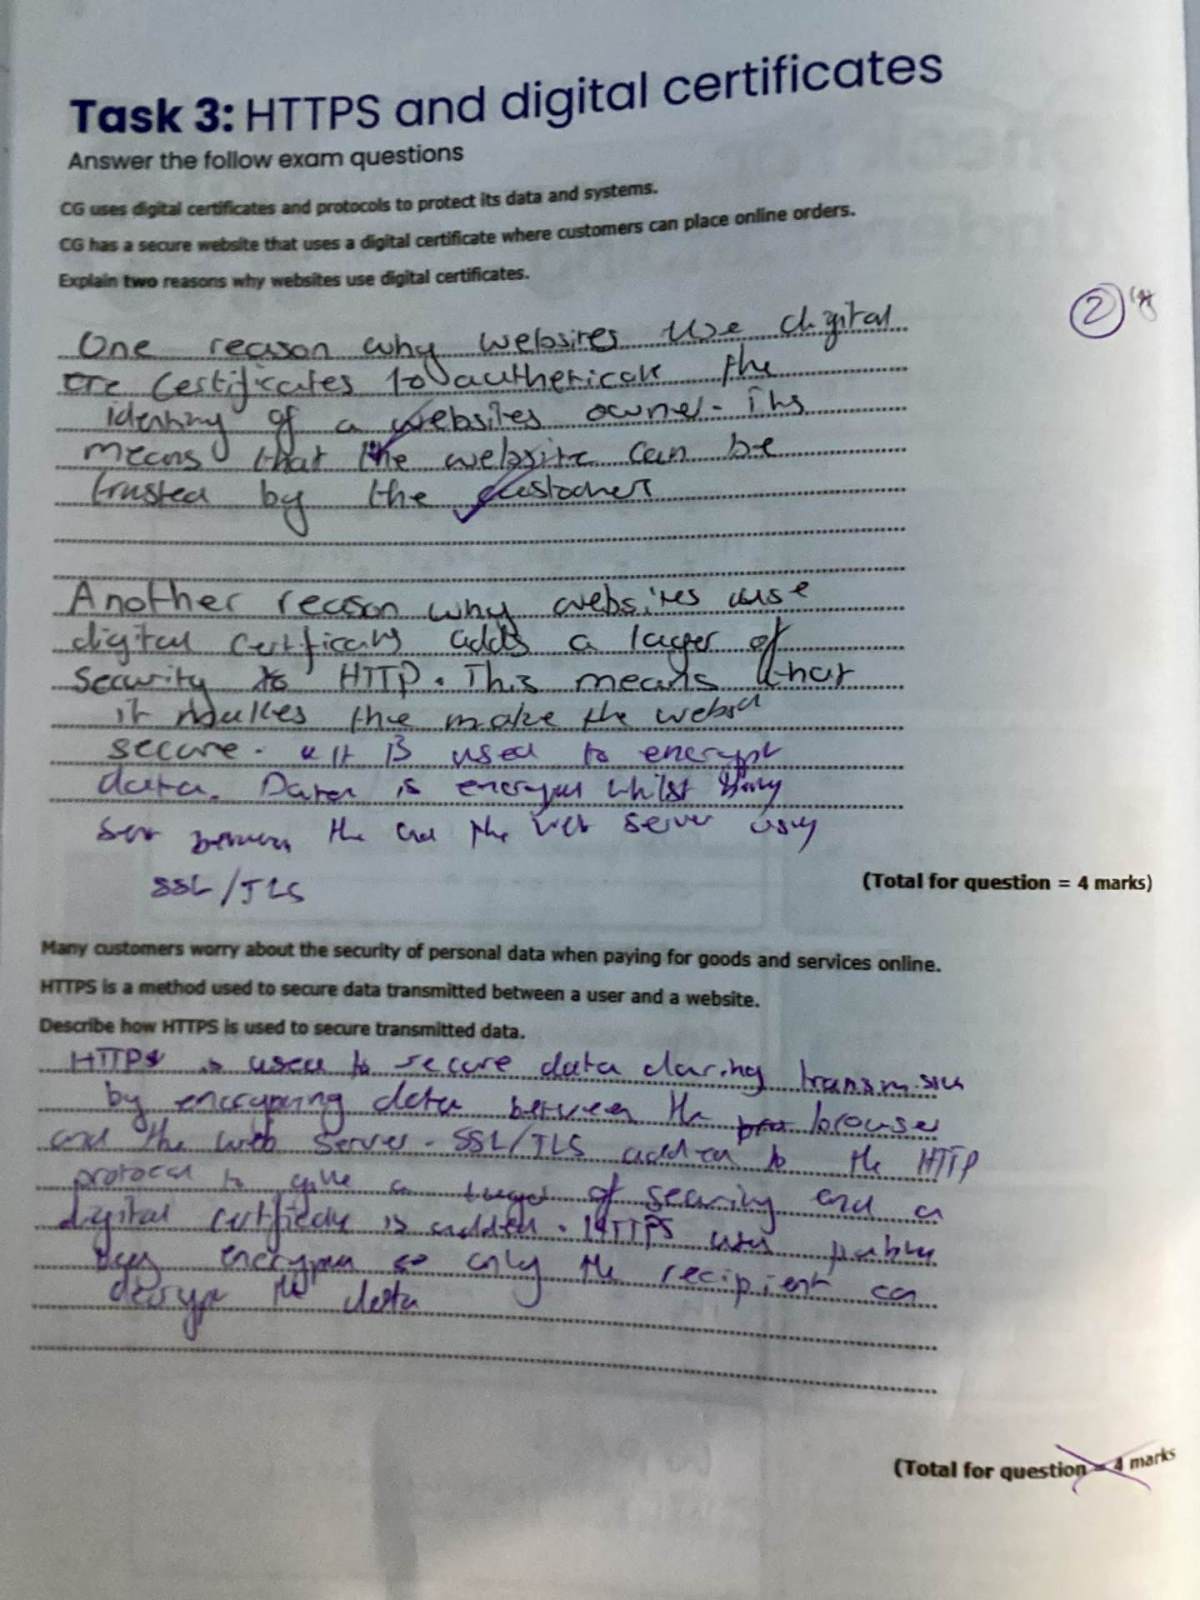 Task 3: HTTPS and digital certificates
Answer the follow exam questions
CG uses digital certificates and protocols to protect its data and systems.
CG has a secure website that uses a digital certificate where customers can place online orders.
Explain two reasons why websites use digital certificates.
2
One reason why websites use digital
certificates to authenticate the
identity of a websites owner. This
means that the website can be
trusted by the customer
Another reason why websites use
digital certificates adds a layer of
security to HTTP. This means that
it makes the make the website
secure. It is used to encrypt
data. Data is encrypted whilst being
sent between the and the web server using
SSL/TLS
(Total for question = 4 marks)
Many customers worry about the security of personal data when paying for goods and services online.
HTTPS is a method used to secure data transmitted between a user and a website.
Describe how HTTPS is used to secure transmitted data.
HTTPS is used to secure data during transmission
by encrypting data between the browser
and the web server. SSL/TLS added to the HTTP
protocol to give a layer of security and a
digital certificate is added. HTTPS uses public
key encryption so only the recipient can
decrypt the data
(Total for question = 4 marks